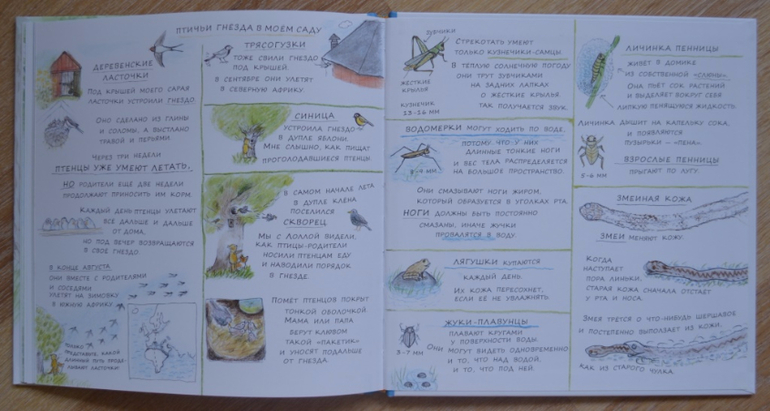 ПТИЧЬИ ГНЕЗДА В МОЁМ САДУ
ДЕРЕВЕНСКИЕ
ЛАСТОЧКИ
ПОД КРЫШЕЙ МОЕГО САРАЯ
ЛАСТОЧКИ УСТРОИЛИ ГНЕЗДО.
ОНО СДЕЛАНО ИЗ ГЛИНЫ
И СОЛОМЫ, А ВЫСТЛАНО
ТРАВОЙ И ПЕРЬЯМИ.
ЧЕРЕЗ ТРИ НЕДЕЛИ
ПТЕНЦЫ УЖЕ УМЕЮТ ЛЕТАТЬ,
НО РОДИТЕЛИ ЕЩЕ ДВЕ НЕДЕЛИ
ПРОДОЛЖАЮТ ПРИНОСИТЬ ИМ КОРМ.
КАЖДЫЙ ДЕНЬ ПТЕНЦЫ УЛЕТАЮТ
ВСЕ ДАЛЬШЕ И ДАЛЬШЕ
ОТ ДОМА,
НО ПОД ВЕЧЕР ВОЗВРАЩАЮТСЯ
В СВОЁ ГНЕЗДО.
В КОНЦЕ АВГУСТА
ОНИ ВМЕСТЕ С РОДИТЕЛЯМИ
И СОСЕДЯМИ
УЛЕТЯТ НА ЗИМОВКУ
В ЮЖНУЮ АФРИКУ.
ТОЛЬКО
ПРЕДСТАВЬТЕ, КАКОЙ
ДЛИННЫЙ ПУТЬ ПРОДЕ-
ЛЫВАЮТ ЛАСТОЧКИ!
ТРЯСОГУЗКИ
ТОЖЕ СВИЛИ ГНЕЗДО
ПОД КРЫШЕЙ.
В СЕНТЯБРЕ ОНИ УЛЕТЯТ
В СЕВЕРНУЮ АФРИКУ.
СИНИЦА
УСТРОИЛА ГНЕЗДО
В ДУПЛЕ ЯБЛОНИ.
МНЕ СЛЫШНО, КАК ПИЩАТ
ПРОГОЛОДАВШИЕСЯ ПТЕНЦЫ.
В САМОМ НАЧАЛЕ ЛЕТА
В ДУПЛЕ КЛЕНА
ПОСЕЛИЛСЯ
СКВОРЕЦ.
МЫ С ЛОЛЛОЙ ВИДЕЛИ,
КАК ПТИЦЫ-РОДИТЕЛИ
НОСИЛИ ПТЕНЦАМ ЕДУ
И НАВОДИЛИ ПОРЯДОК
В ГНЕЗДЕ.
ПОМЕТ ПТЕНЦОВ ПОКРЫТ
ТОНКОЙ ОБОЛОЧКОЙ.
МАМА ИЛИ ПАПА
БЕРУТ КЛЮВОМ
ТАКОЙ "ПАКЕТИК"
И УНОСЯТ ПОДАЛЬШЕ
ОТ ГНЕЗДА.
ЗУБЧИКИ
ЖЕСТКИЕ
КРЫЛЬЯ
КУЗНЕЧИК
13-16 ММ
СТРЕКОТАТЬ УМЕЮТ
ТОЛЬКО КУЗНЕЧИКИ-САМЦЫ.
В ТЕПЛУЮ СОЛНЕЧНУЮ ПОГОДУ
ОНИ ТРУТ ЗУБЧИКАМИ
НА ЗАДНИХ ЛАПКАХ
О ЖЕСТКИЕ КРЫЛЬЯ.
ТАК ПОЛУЧАЕТСЯ ЗВУК.
ВОДОМЕРКИ МОГУТ ХОДИТЬ ПО ВОДЕ,
ПОТОМУ ЧТО У НИХ
ДЛИННЫЕ ТОНКИЕ НОГИ
И ВЕС ТЕЛА РАСПРЕДЕЛЯЕТСЯ
НА БОЛЬШОЕ ПРОСТРАНСТВО.
ОНИ СМАЗЫВАЮТ НОГИ ЖИРОМ,
КОТОРЫЙ ОБРАЗУЕТСЯ В УГОЛКАХ РТА.
НОГИ ДОЛЖНЫ БЫТЬ ПОСТОЯННО
СМАЗАНЫ, ИНАЧЕ ЖУЧКИ
ПРОВАЛЯТСЯ В ВОДУ.
ЛЯГУШКИ КУПАЮТСЯ
КАЖДЫЙ ДЕНЬ.
ИХ КОЖА ПЕРЕСОХНЕТ,
ЕСЛИ ЕЕ НЕ УВЛАЖНЯТЬ.
ЖУКИ-ПЛАВУНЦЫ
ПЛАВАЮТ КРУГАМИ
У ПОВЕРХНОСТИ ВОДЫ.
ОНИ МОГУТ ВИДЕТЬ ОДНОВРЕМЕННО
И ТО, ЧТО НАД ВОДОЙ,
И ТО, ЧТО ПОД НЕЙ.
3-7 ММ
ЛИЧИНКА ПЕННИЦЫ
ЖИВЕТ В ДОМИКЕ
ИЗ СОБСТВЕННОЙ «СЛЮНЫ».
ОНА ПЬЕТ СОК РАСТЕНИЙ
И ВЫДЕЛЯЕТ ВОКРУГ СЕБЯ
ЛИПКУЮ ПЕНЯЩУЮСЯ ЖИДКОСТЬ.
ЛИЧИНКА ДЫШИТ НА КАПЕЛЬКУ СОКА,
И ПОЯВЛЯЮТСЯ
ПУЗЫРЬКИ – «ПЕНА».
ВЗРОСЛЫЕ ПЕННИЦЫ
ПРЫГАЮТ ПО ЛУГУ.
5-6 ММ
ЗМЕИНАЯ КОЖА
ЗМЕИ МЕНЯЮТ КОЖУ.
КОГДА
НАСТУПАЕТ
ПОРА ЛИНЬКИ,
СТАРАЯ КОЖА СНАЧАЛА ОТСТАЕТ
У РТА И НОСА.
ЗМЕЯ ТРЕТСЯ О ЧТО-НИБУДЬ ШЕРШАВОЕ
И ПОСТЕПЕННО ВЫПОЛЗАЕТ ИЗ КОЖИ,
КАК ИЗ СТАРОГО ЧУЛКА.